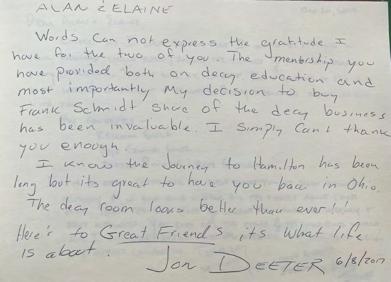 ALAN & ELAINE
Words Can not express the gratitude I
have for the two of you. The mentorship you
have provided both on decoy education and
most importantly my decision to buy
Frank Schmidt share of the decoy business
has been invaluable. I Simply Can't thank
you enough
I know the Journey to Hamilton has been
long but its great to have you back in Ohio.
The decoy room looks better than ever!!
Here's to Great Friends its what life
is about.
Jon DEETER 6/8/2017